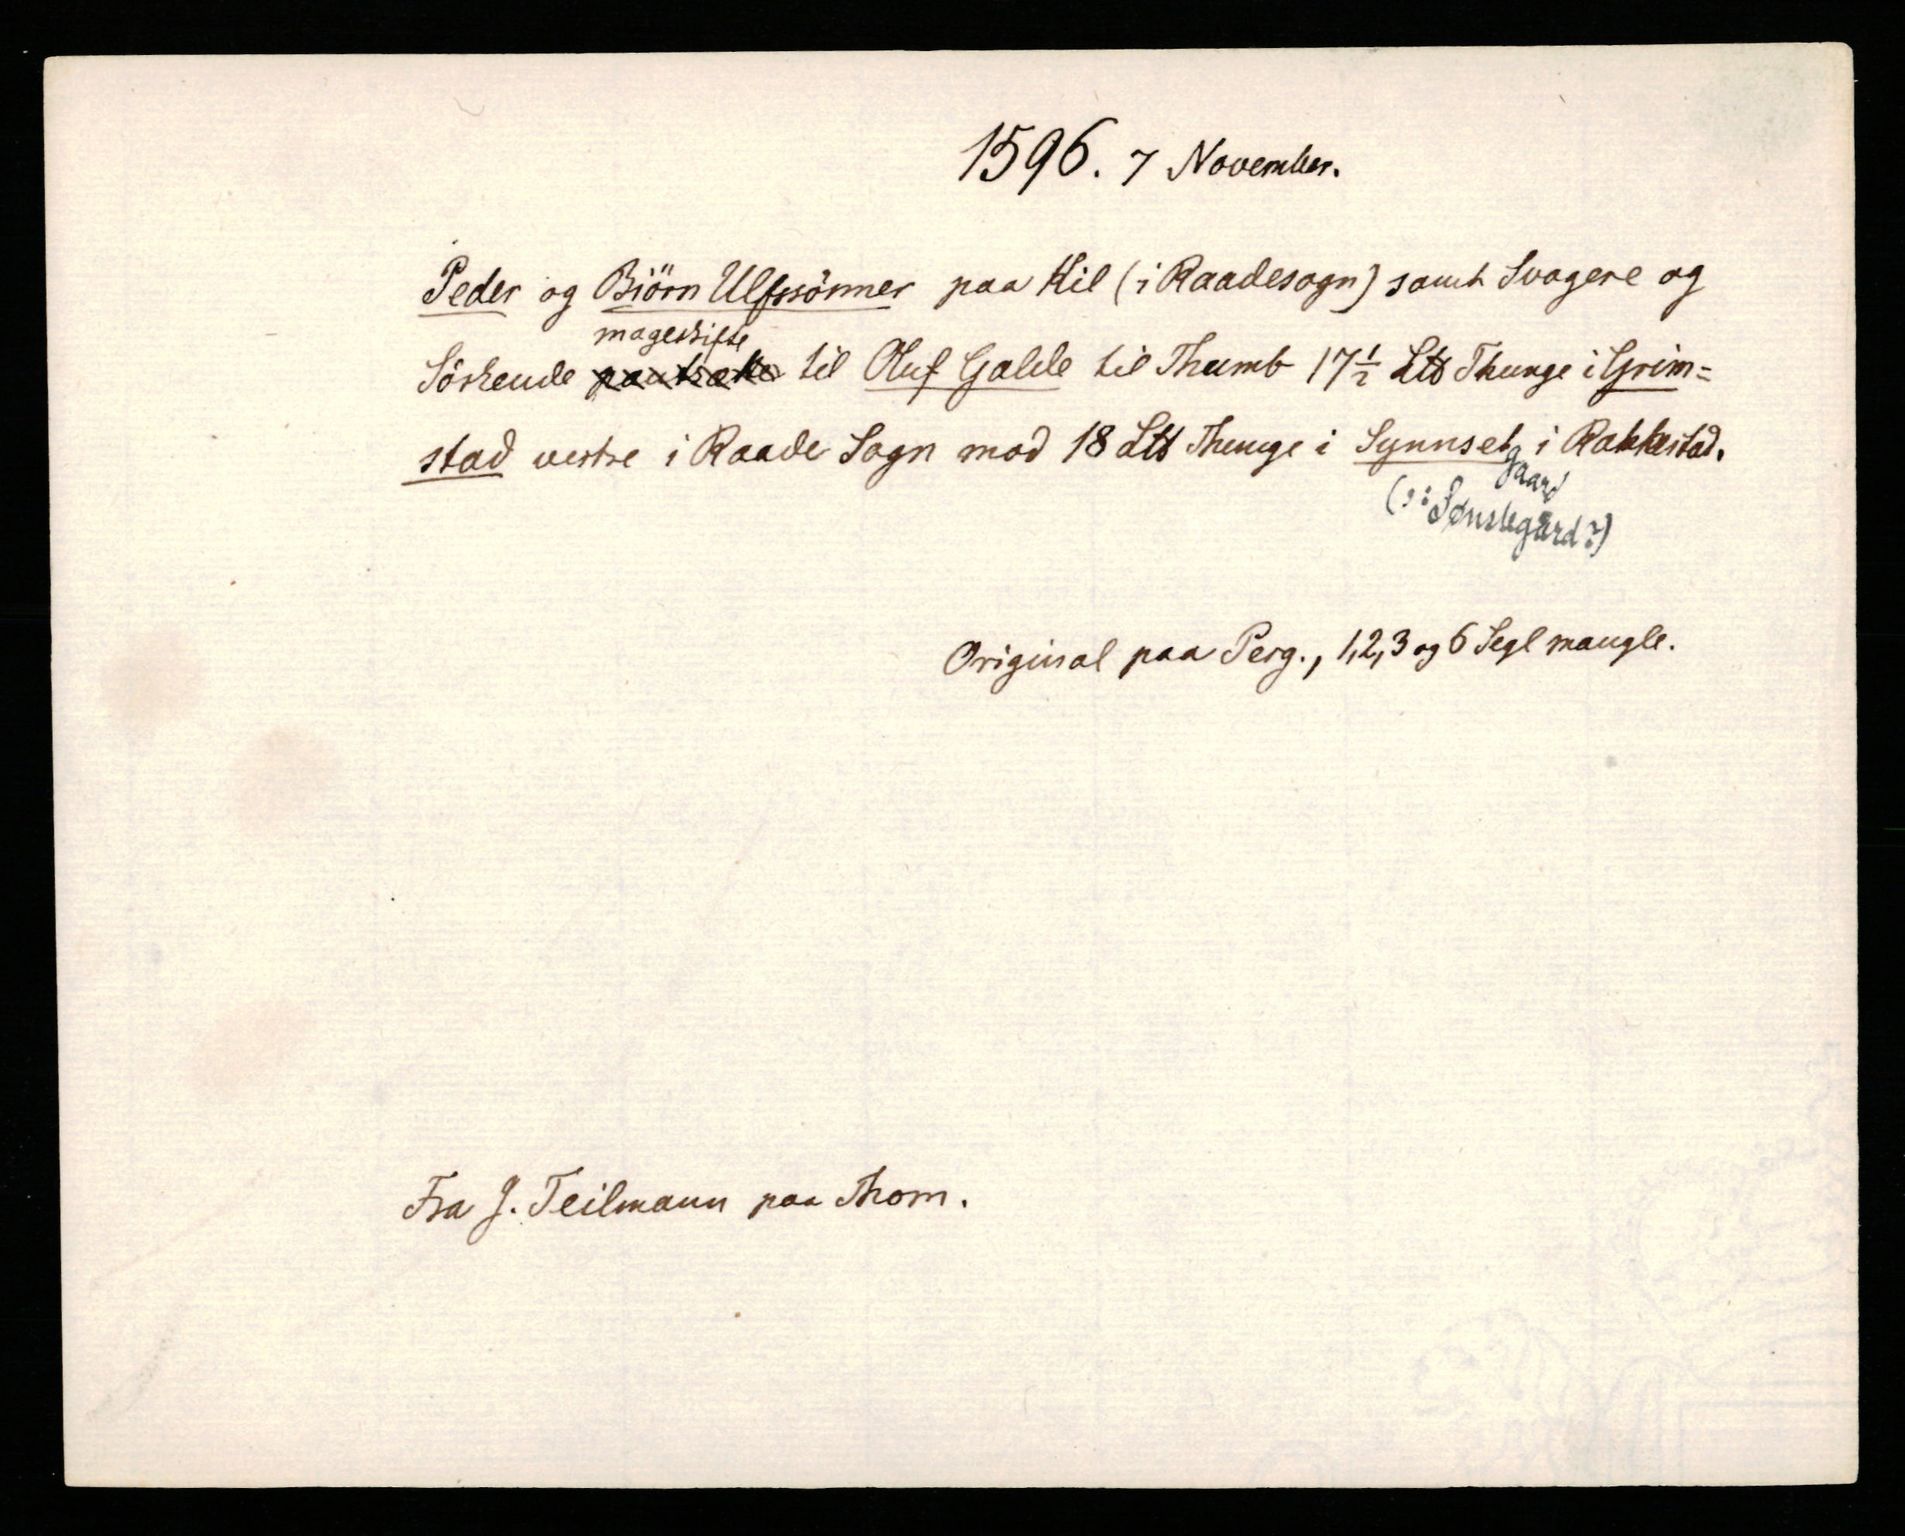 1596. 7 November.
Peder og Biörn Ulfssönner paa Kil (i Raadesogn) samt Svogere og
mageskifte
Söskende pantsætte til Oluf Galde til Thumb 17½ L℔ Thunge i Grim=
stad vestre i Raade Sogn mod 18 L℔ Thunge i Synnset i Rakkestad.
gaard
(ɔ: Sønstegård?)
Original paa Perg., 1,2,3 og 6 Segl mangle.
Fra J. Teilmann paa Thom.